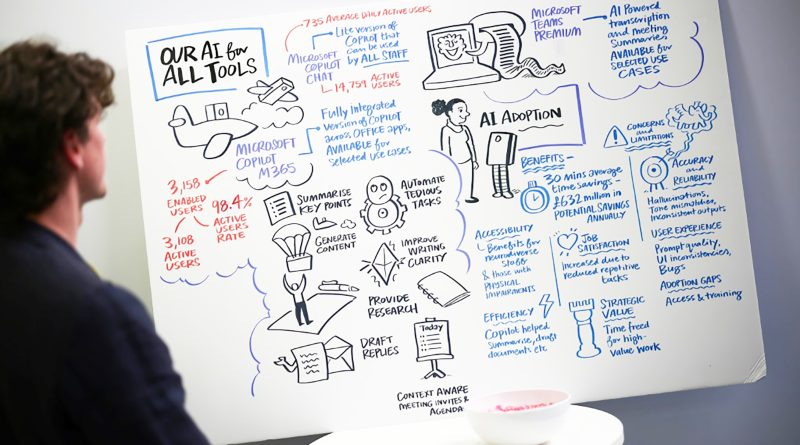 OUR AI for
ALL TOOLS
735 AVERAGE DAILY ACTIVE USERS
MICROSOFT
COPILOT
CHAT
Lite version of
Copilot that
can be used
by ALL STAFF
14,759 ACTIVE
USERS
MICROSOFT
COPILOT
M365
Fully Integrated
version of COPILOT
across OFFICE apps,
AVAILABLE for
selected use cases
3,158
ENABLED
USERS
98.4%
ACTIVE
USERS
RATE
3,108
ACTIVE
USERS
SUMMARISE
KEY POINTS
AUTOMATE
TEDIOUS
TASKS
GENERATE
CONTENT
IMPROVE
WRITING
CLARITY
PROVIDE
RESEARCH
DRAFT
REPLIES
Today
CONTEXT AWARE
MEETING INVITES &
AGENDA
MICROSOFT
TEAMS
PREMIUM
AI Powered
transcription
and meeting
Summaries,
AVAILABLE for
SELECTED USE
CASES
AI ADOPTION
BENEFITS -
30 mins average
time savings -
£632 million in
POTENTIAL SAVINGS
ANNUALLY
ACCESSIBILITY
Benefits for
neurodiverse
staff
& those with
PHYSICAL
IMPAIRMENTS
JOB
SATISFACTION
Increased due to
reduced repetitive
tasks
EFFICIENCY
Copilot helped
summarise, draft
documents etc
STRATEGIC
VALUE
Time freed
for high-
value work
CONCERNS
and
LIMITATIONS
ACCURACY
and
RELIABILITY
Hallucinations,
Tone mismatches,
Inconsistent outputs
USER EXPERIENCE
Prompt quality,
UI inconsistencies,
Bugs
ADOPTION GAPS
Access & training